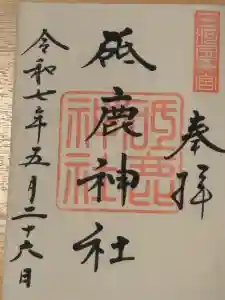 三河國一宮
奉拝
砥鹿神社
砥鹿神社
令和七年五月二十六日